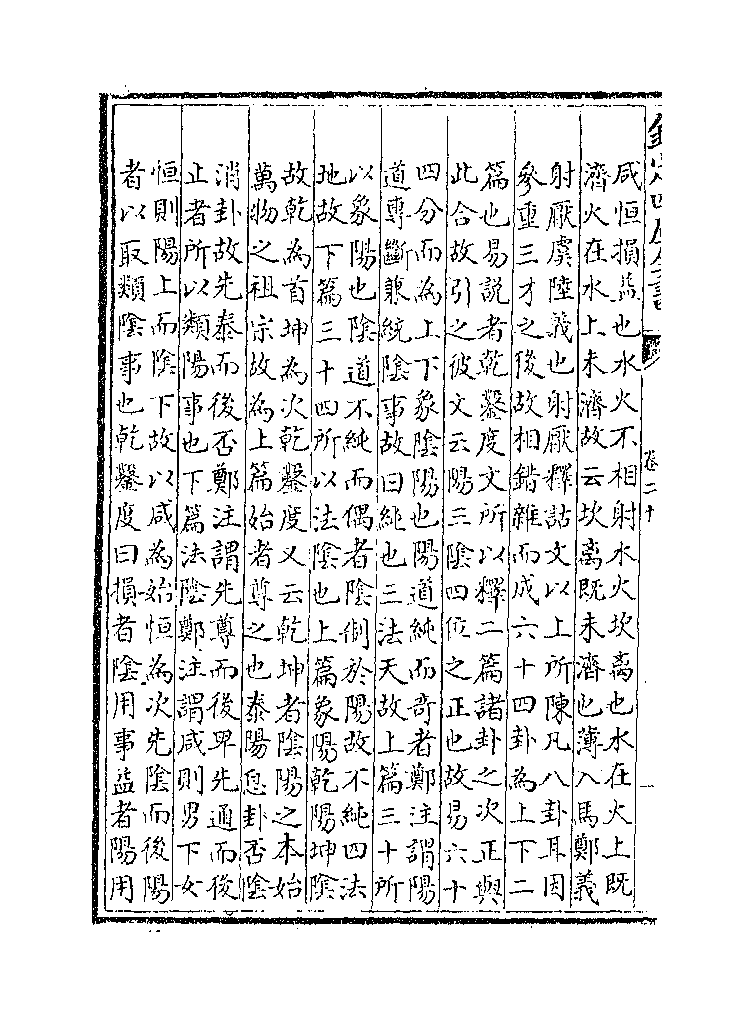 欽定四庫全書
卷二十
咸恒損益也水火不相射水火坎离也水在火上既
濟火在水上未濟故云坎离既未濟也薄入馬鄭義
射厭虞陸義也射厭釋詁文以上所陳凡八卦耳因
參重三才之後故相錯雜而成六十四卦為上下二
篇也易説者乾鑿度文所以釋二篇諸卦之次正與
此合故引之彼文云陽三陰四位之正也故易六十
四分而為上下象陰陽也陽道純而奇者鄭注謂陽
道專斷兼統陰事故曰純也三法天故上篇三十所
以象陽也陰道不純而偶者陰制於陽故不純四法
地故下篇三十四所以法陰也上篇象陽乾陽坤陰
故乾為首坤為次乾鑿度又云乾坤者陰陽之本始
萬物之祖宗故為上篇始者尊之也泰陽息卦否陰
消卦故先泰而後否鄭注謂先尊而後卑先通而後
止者所以類陽事也下篇法陰鄭注謂咸則男下女
恒則陽上而陰下故以咸為始恒為次先陰而後陽
者以取類陰事也乾鑿度曰損者陰用事益者陽用